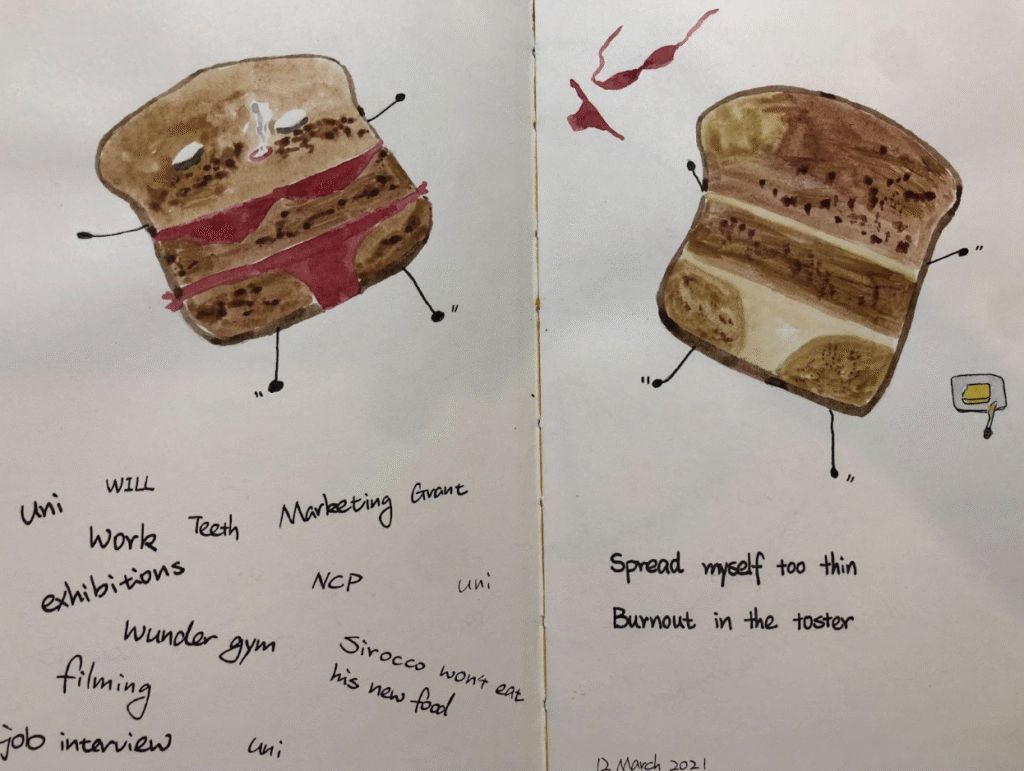 uni
WILL
Work
Teeth
Marketing
Grant
exhibitions
NCP
uni
Wunder gym
Sirocco won't eat
his new food
filming
job interview
uni
Spread myself too thin
Burnout in the toster
12 March 2021